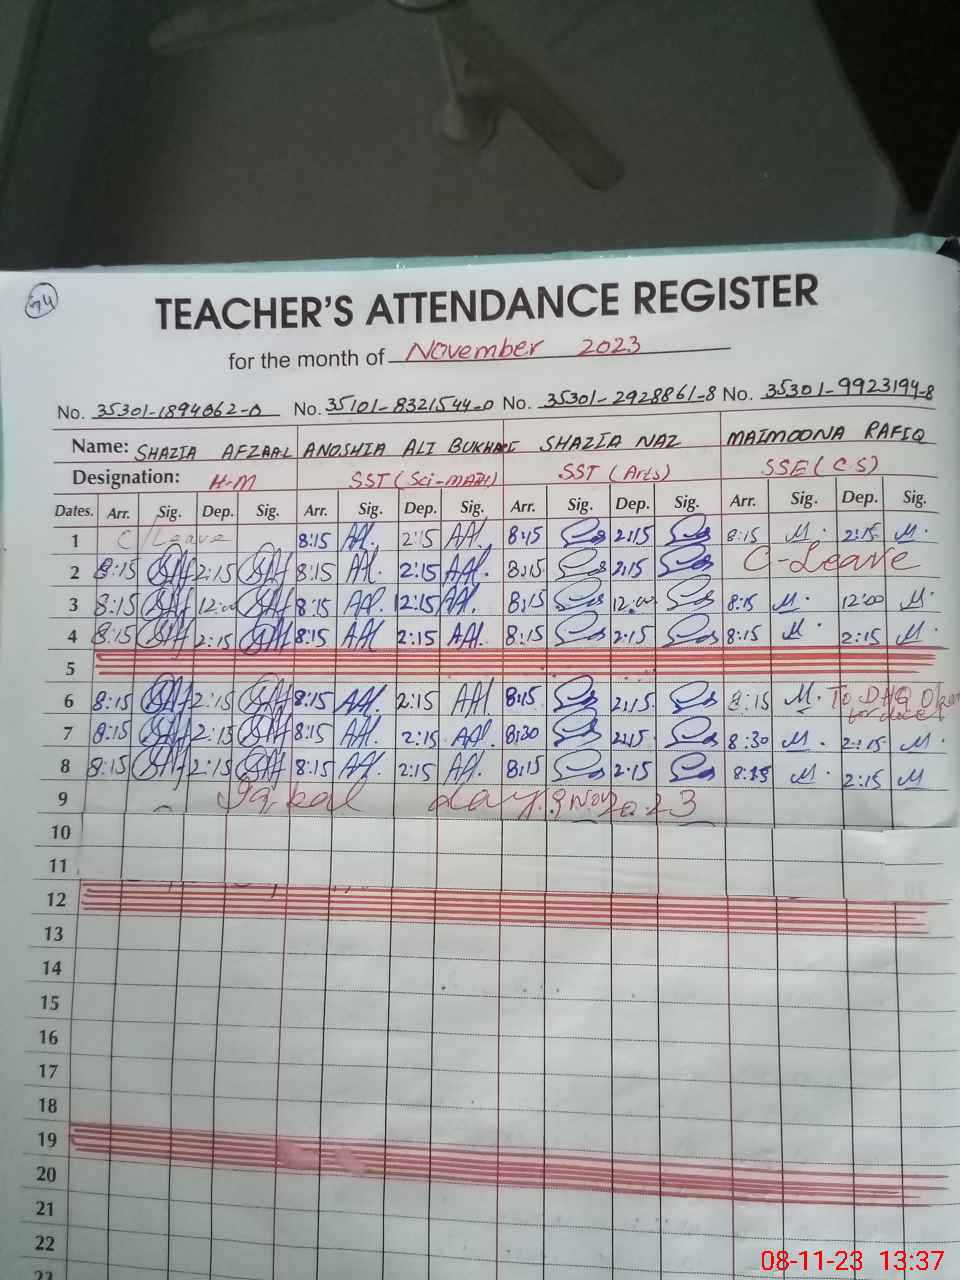 74
TEACHER'S ATTENDANCE REGISTER
for the month of November 2023
No. 35301-1894062-0 No. 35101-8321544-0 No. 35301-2928861-8 No. 35301-9923194-8
Name: SHAZIA AFZAAL ANOSHIA ALI BUKHARI SHAZIA NAZ MAIMOONA RAFIQ
Designation: H-M SST (Sci-MATH) SST (Arts) SSE (C.S)
Dates. Arr. Sig. Dep. Sig. Arr. Sig. Dep. Sig. Arr. Sig. Dep. Sig. Arr. Sig. Dep. Sig.
1 C/Leave 8:15 2:15 8:15 2:15 8:15 M. 2:15 M.
2 8:15 2:15 8:15 2:15 8:15 2:15 C-Leave
3 8:15 12:00 8:15 12:15 8:15 12:00 8:15 M. 12:00 M.
4 8:15 2:15 8:15 2:15 8:15 2:15 8:15 M. 2:15 M.
5
6 8:15 2:15 8:15 2:15 8:15 2:15 8:15 M. To DHQ
7 8:15 2:15 8:15 2:15 8:30 2:15 8:30 M. 2:15 M.
8 8:15 2:15 8:15 2:15 8:15 2:15 8:15 M. 2:15 M
9 Iqbal day. 9 Nov 2023
10
11
12
13
14
15
16
17
18
19
20
21
22
23
08-11-23 13:37